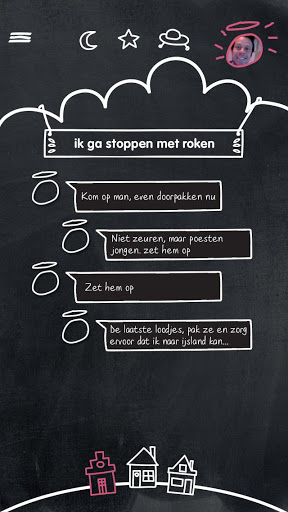 ik ga stoppen met roken
Kom op man, even doorpakken nu
Niet zeuren, maar poesten
jongen. zet hem op
Zet hem op
De laatste loodjes, pak ze en zorg
ervoor dat ik naar ijsland kan...